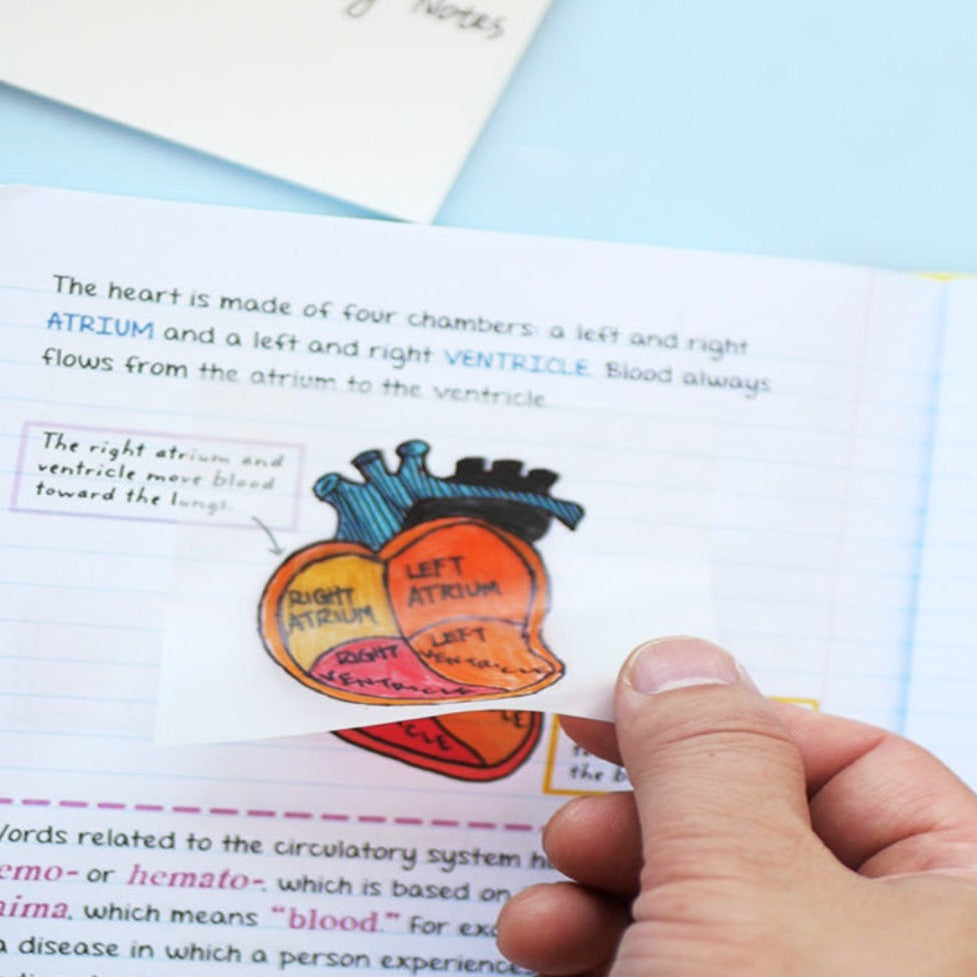 Notes
The heart is made of four chambers: a left and right
ATRIUM and a left and right VENTRICLE. Blood always
flows from the atrium to the ventricle.
The right atrium and
ventricle move blood
toward the lungs.
LEFT
ATRIUM
RIGHT
ATRIUM
LEFT
VENTRICLE
RIGHT
VENTRICLE
CLE
LE
the b
Words related to the circulatory system
emo- or hemato-, which is based on
aima, which means "blood." For
a disease in which a person experiences